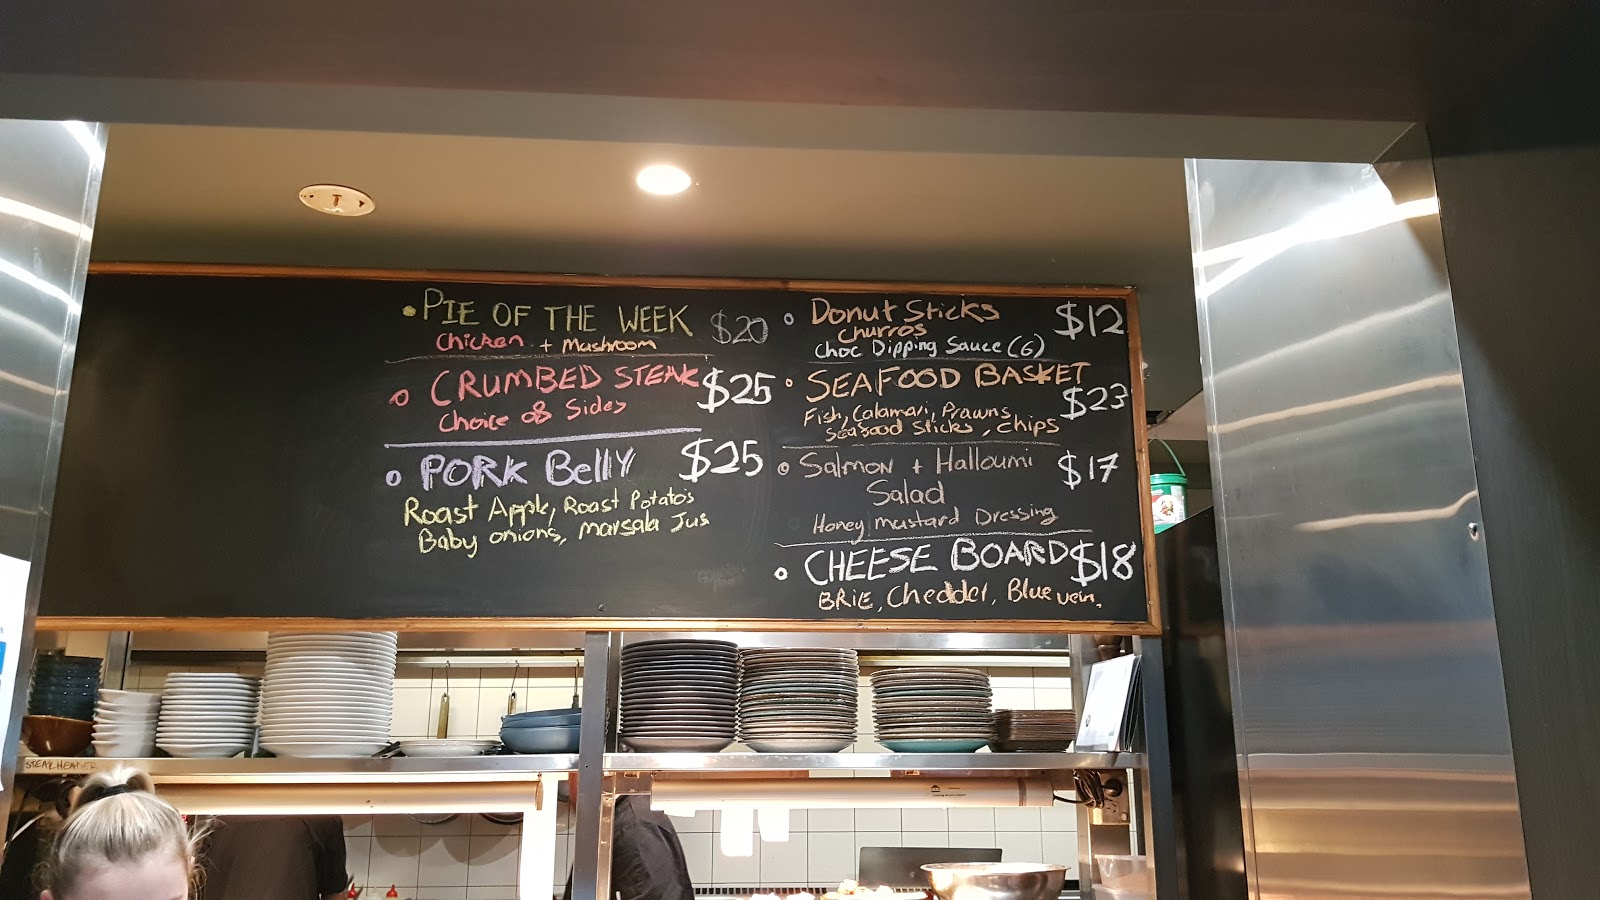 PIE OF THE WEEK $20
Chicken + Mushroom
CRUMBED STEAK $25
Choice of Sides
PORK Belly $25
Roast Apple, Roast Potato's
Baby onions, Marsala Jus
Donut Sticks $12
Churros
Choc Dipping Sauce (6)
SEAFOOD BASKET $23
Fish, Calamari, Prawns
Seafood Sticks, Chips
Salmon + Halloumi $17
Salad
Honey mustard Dressing
CHEESE BOARD $18
BRIE, Chedder, Blue vein.